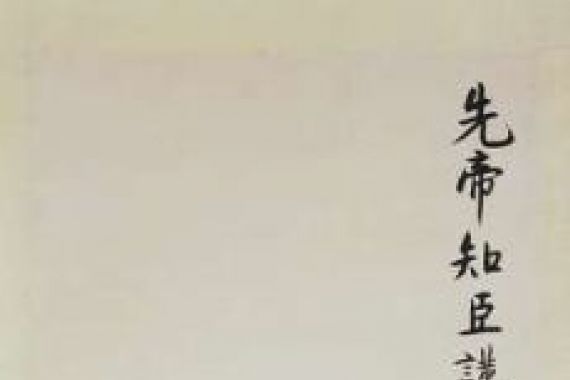 先帝知臣